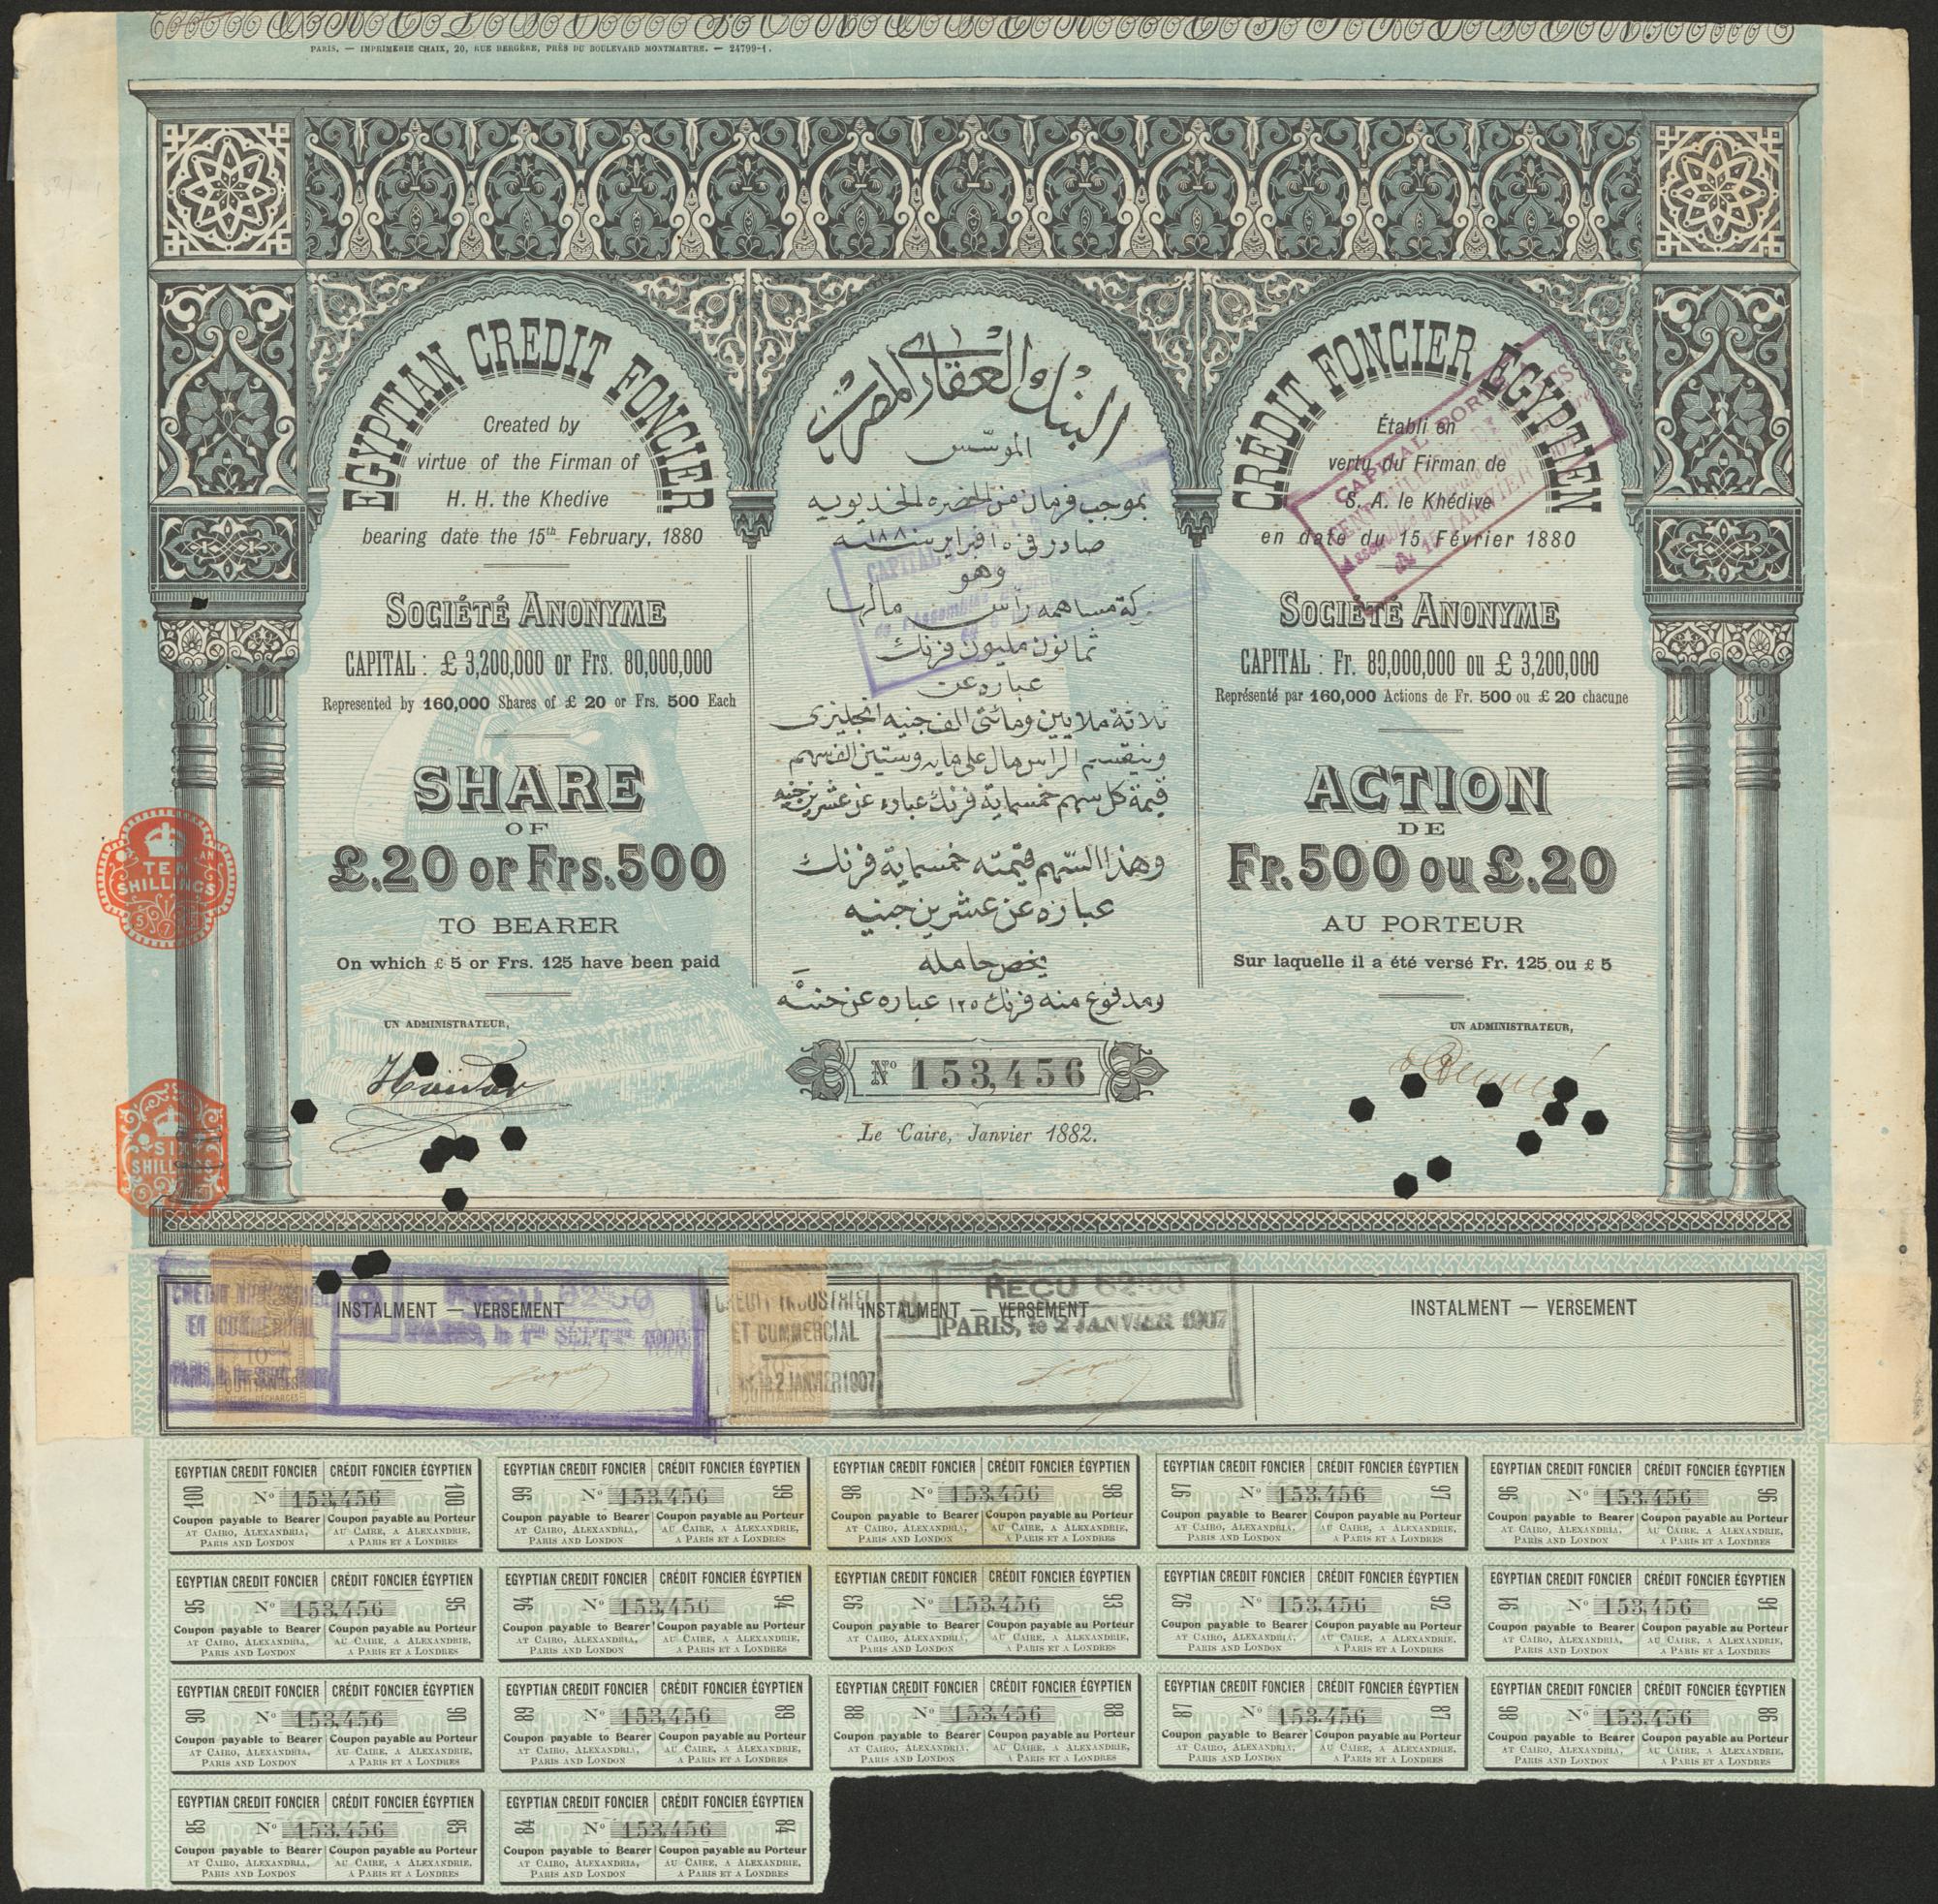 PARIS. — IMPRIMERIE CHAIX, 20, RUE BERGÈRE, PRÈS DU BOULEVARD MONTMARTRE. — 24799-1.
EGYPTIAN CREDIT FONCIER
Created by
virtue of the Firman of
H. H. the Khedive
bearing date the 15th February, 1880
SOCIÉTÉ ANONYME
CAPITAL : £ 3,200,000 or Frs. 80,000,000
Represented by 160,000 Shares of £ 20 or Frs. 500 Each
SHARE
OF
£.20 or Frs.500
TO BEARER
On which £ 5 or Frs. 125 have been paid
UN ADMINISTRATEUR,
البنك العقارى المصرى
المؤسّس
بموجب فرمان من الحضره الخديويه
صادر فى ١٥ فبراير سنه ١٨٨٠
وهو
شركة مساهمه راس مالها
ثمانون مليون فرنك
عباره عن
ثلاثة ملايين ومائتى الف جنيه انجليزى
وينقسم الراس مال على مايه وستين الف سهم
قيمة كل سهم خمسماية فرنك عباره عن عشرين جنيه
وهذا السّهم قيمته خمسماية فرنك
عباره عن عشرين جنيه
يخص حامله
ومدفوع منه فرنك ١٢٥ عباره عن جنيه
No 153,456
Le Caire, Janvier 1882.
CRÉDIT FONCIER ÉGYPTIEN
Établi en
vertu du Firman de
S. A. le Khédive
en date du 15 Février 1880
SOCIÉTÉ ANONYME
CAPITAL : Fr. 80,000,000 ou £ 3,200,000
Représenté par 160,000 Actions de Fr. 500 ou £ 20 chacune
ACTION
DE
Fr.500 ou £.20
AU PORTEUR
Sur laquelle il a été versé Fr. 125 ou £ 5
UN ADMINISTRATEUR,
CAPITAL
JANVIER
TEN
SHILLINGS
SIX
SHILLINGS
INSTALMENT — VERSEMENT
INSTALMENT — VERSEMENT
INSTALMENT — VERSEMENT
ET COMMERCIAL
CREDIT INDUSTRIEL
ET COMMERCIAL
2 JANVIER 1907
REÇU 62.50
PARIS, le 2 JANVIER 1907
EGYPTIAN CREDIT FONCIER | CRÉDIT FONCIER ÉGYPTIEN
100 No 153,456 100
Coupon payable to Bearer | Coupon payable au Porteur
AT CAIRO, ALEXANDRIA, | AU CAIRE, A ALEXANDRIE,
PARIS AND LONDON | A PARIS ET A LONDRES
EGYPTIAN CREDIT FONCIER | CRÉDIT FONCIER ÉGYPTIEN
99 No 153,456 99
Coupon payable to Bearer | Coupon payable au Porteur
AT CAIRO, ALEXANDRIA, | AU CAIRE, A ALEXANDRIE,
PARIS AND LONDON | A PARIS ET A LONDRES
EGYPTIAN CREDIT FONCIER | CRÉDIT FONCIER ÉGYPTIEN
98 No 153,456 98
Coupon payable to Bearer | Coupon payable au Porteur
AT CAIRO, ALEXANDRIA, | AU CAIRE, A ALEXANDRIE,
PARIS AND LONDON | A PARIS ET A LONDRES
EGYPTIAN CREDIT FONCIER | CRÉDIT FONCIER ÉGYPTIEN
97 No 153,456 97
Coupon payable to Bearer | Coupon payable au Porteur
AT CAIRO, ALEXANDRIA, | AU CAIRE, A ALEXANDRIE,
PARIS AND LONDON | A PARIS ET A LONDRES
EGYPTIAN CREDIT FONCIER | CRÉDIT FONCIER ÉGYPTIEN
96 No 153,456 96
Coupon payable to Bearer | Coupon payable au Porteur
AT CAIRO, ALEXANDRIA, | AU CAIRE, A ALEXANDRIE,
PARIS AND LONDON | A PARIS ET A LONDRES
EGYPTIAN CREDIT FONCIER | CRÉDIT FONCIER ÉGYPTIEN
95 No 153,456 95
Coupon payable to Bearer | Coupon payable au Porteur
AT CAIRO, ALEXANDRIA, | AU CAIRE, A ALEXANDRIE,
PARIS AND LONDON | A PARIS ET A LONDRES
EGYPTIAN CREDIT FONCIER | CRÉDIT FONCIER ÉGYPTIEN
94 No 153,456 94
Coupon payable to Bearer | Coupon payable au Porteur
AT CAIRO, ALEXANDRIA, | AU CAIRE, A ALEXANDRIE,
PARIS AND LONDON | A PARIS ET A LONDRES
EGYPTIAN CREDIT FONCIER | CRÉDIT FONCIER ÉGYPTIEN
93 No 153,456 93
Coupon payable to Bearer | Coupon payable au Porteur
AT CAIRO, ALEXANDRIA, | AU CAIRE, A ALEXANDRIE,
PARIS AND LONDON | A PARIS ET A LONDRES
EGYPTIAN CREDIT FONCIER | CRÉDIT FONCIER ÉGYPTIEN
92 No 153,456 92
Coupon payable to Bearer | Coupon payable au Porteur
AT CAIRO, ALEXANDRIA, | AU CAIRE, A ALEXANDRIE,
PARIS AND LONDON | A PARIS ET A LONDRES
EGYPTIAN CREDIT FONCIER | CRÉDIT FONCIER ÉGYPTIEN
91 No 153,456 91
Coupon payable to Bearer | Coupon payable au Porteur
AT CAIRO, ALEXANDRIA, | AU CAIRE, A ALEXANDRIE,
PARIS AND LONDON | A PARIS ET A LONDRES
EGYPTIAN CREDIT FONCIER | CRÉDIT FONCIER ÉGYPTIEN
90 No 153,456 90
Coupon payable to Bearer | Coupon payable au Porteur
AT CAIRO, ALEXANDRIA, | AU CAIRE, A ALEXANDRIE,
PARIS AND LONDON | A PARIS ET A LONDRES
EGYPTIAN CREDIT FONCIER | CRÉDIT FONCIER ÉGYPTIEN
89 No 153,456 89
Coupon payable to Bearer | Coupon payable au Porteur
AT CAIRO, ALEXANDRIA, | AU CAIRE, A ALEXANDRIE,
PARIS AND LONDON | A PARIS ET A LONDRES
EGYPTIAN CREDIT FONCIER | CRÉDIT FONCIER ÉGYPTIEN
88 No 153,456 88
Coupon payable to Bearer | Coupon payable au Porteur
AT CAIRO, ALEXANDRIA, | AU CAIRE, A ALEXANDRIE,
PARIS AND LONDON | A PARIS ET A LONDRES
EGYPTIAN CREDIT FONCIER | CRÉDIT FONCIER ÉGYPTIEN
87 No 153,456 87
Coupon payable to Bearer | Coupon payable au Porteur
AT CAIRO, ALEXANDRIA, | AU CAIRE, A ALEXANDRIE,
PARIS AND LONDON | A PARIS ET A LONDRES
EGYPTIAN CREDIT FONCIER | CRÉDIT FONCIER ÉGYPTIEN
86 No 153,456 86
Coupon payable to Bearer | Coupon payable au Porteur
AT CAIRO, ALEXANDRIA, | AU CAIRE, A ALEXANDRIE,
PARIS AND LONDON | A PARIS ET A LONDRES
EGYPTIAN CREDIT FONCIER | CRÉDIT FONCIER ÉGYPTIEN
85 No 153,456 85
Coupon payable to Bearer | Coupon payable au Porteur
AT CAIRO, ALEXANDRIA, | AU CAIRE, A ALEXANDRIE,
PARIS AND LONDON | A PARIS ET A LONDRES
EGYPTIAN CREDIT FONCIER | CRÉDIT FONCIER ÉGYPTIEN
84 No 153,456 84
Coupon payable to Bearer | Coupon payable au Porteur
AT CAIRO, ALEXANDRIA, | AU CAIRE, A ALEXANDRIE,
PARIS AND LONDON | A PARIS ET A LONDRES